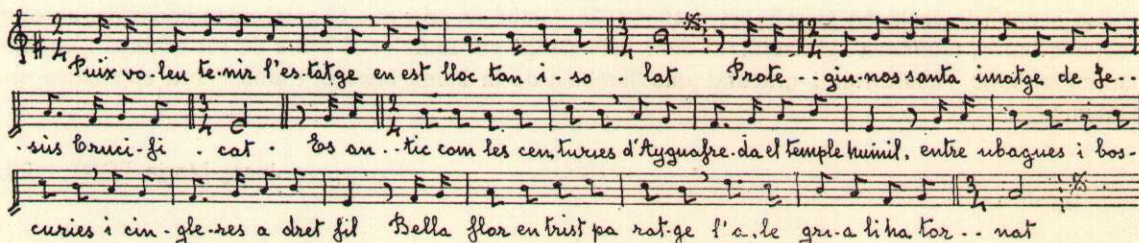 Puix vo-leu te-nir l'es-tatge en est lloc tan i-so-lat Prote--giu-nos santa imatge de Je--
-sús Cruci-fi-cat. Es an--tic com les centuries d'Ayguafre-da el temple humil, entre ubagues i bos-
curies i cin-gle-res a dret fil Bella flor en trist pa rat-ge l'a-le gri-a li ha tor--nat